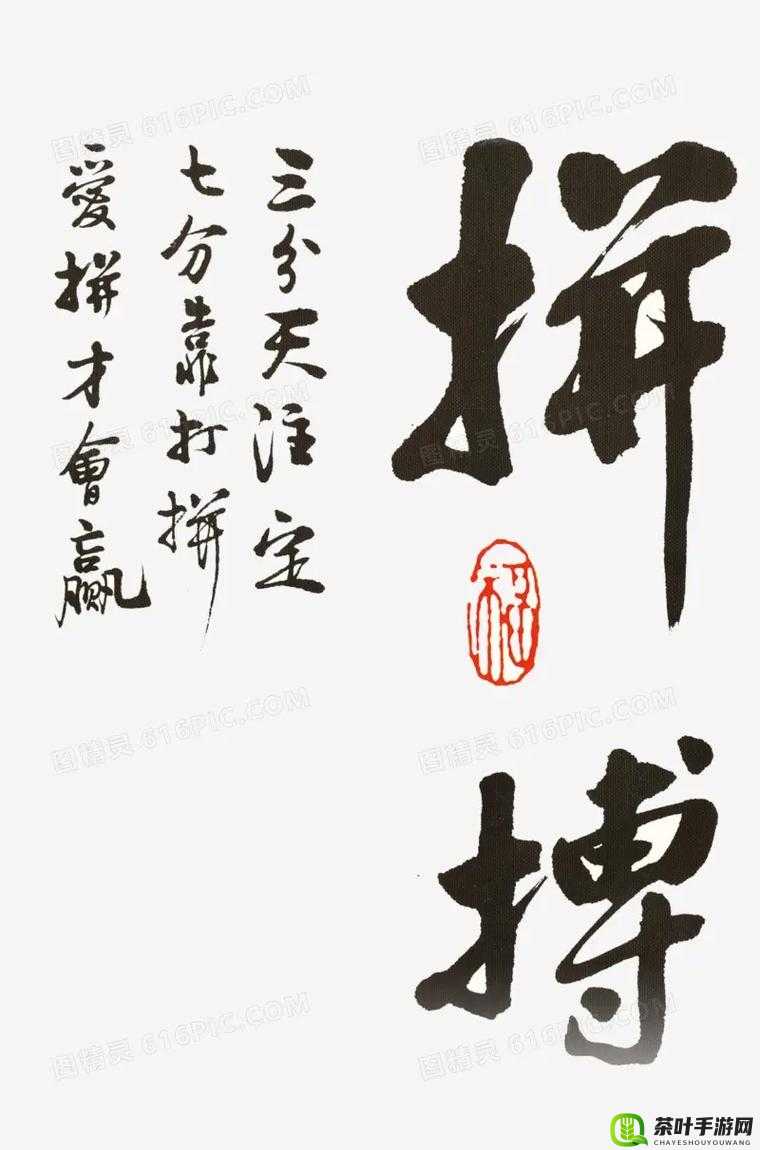 拼搏
三分天注定
七分靠打拼
愛拼才會贏
图精灵 616PIC.COM
图精灵 616PIC.COM
图精灵 616PIC.COM
图精灵 616PIC.COM
图精灵 616PIC.COM
图精灵 616PIC.COM
图精灵 616PIC.COM
图精灵 616PIC.COM
茶叶手游网
CHAYESHOUYOUWANG